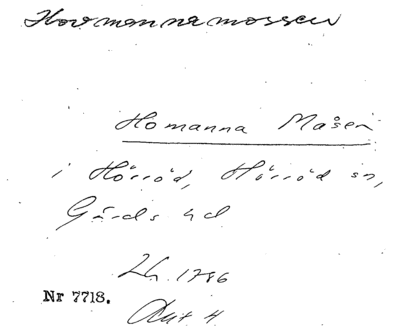 Hovmannamossen
Homanna Måsen
i Hörröd, Hörröd sn,
Gärds hd
Lh. 1786
Nr 7718.
Akt 4